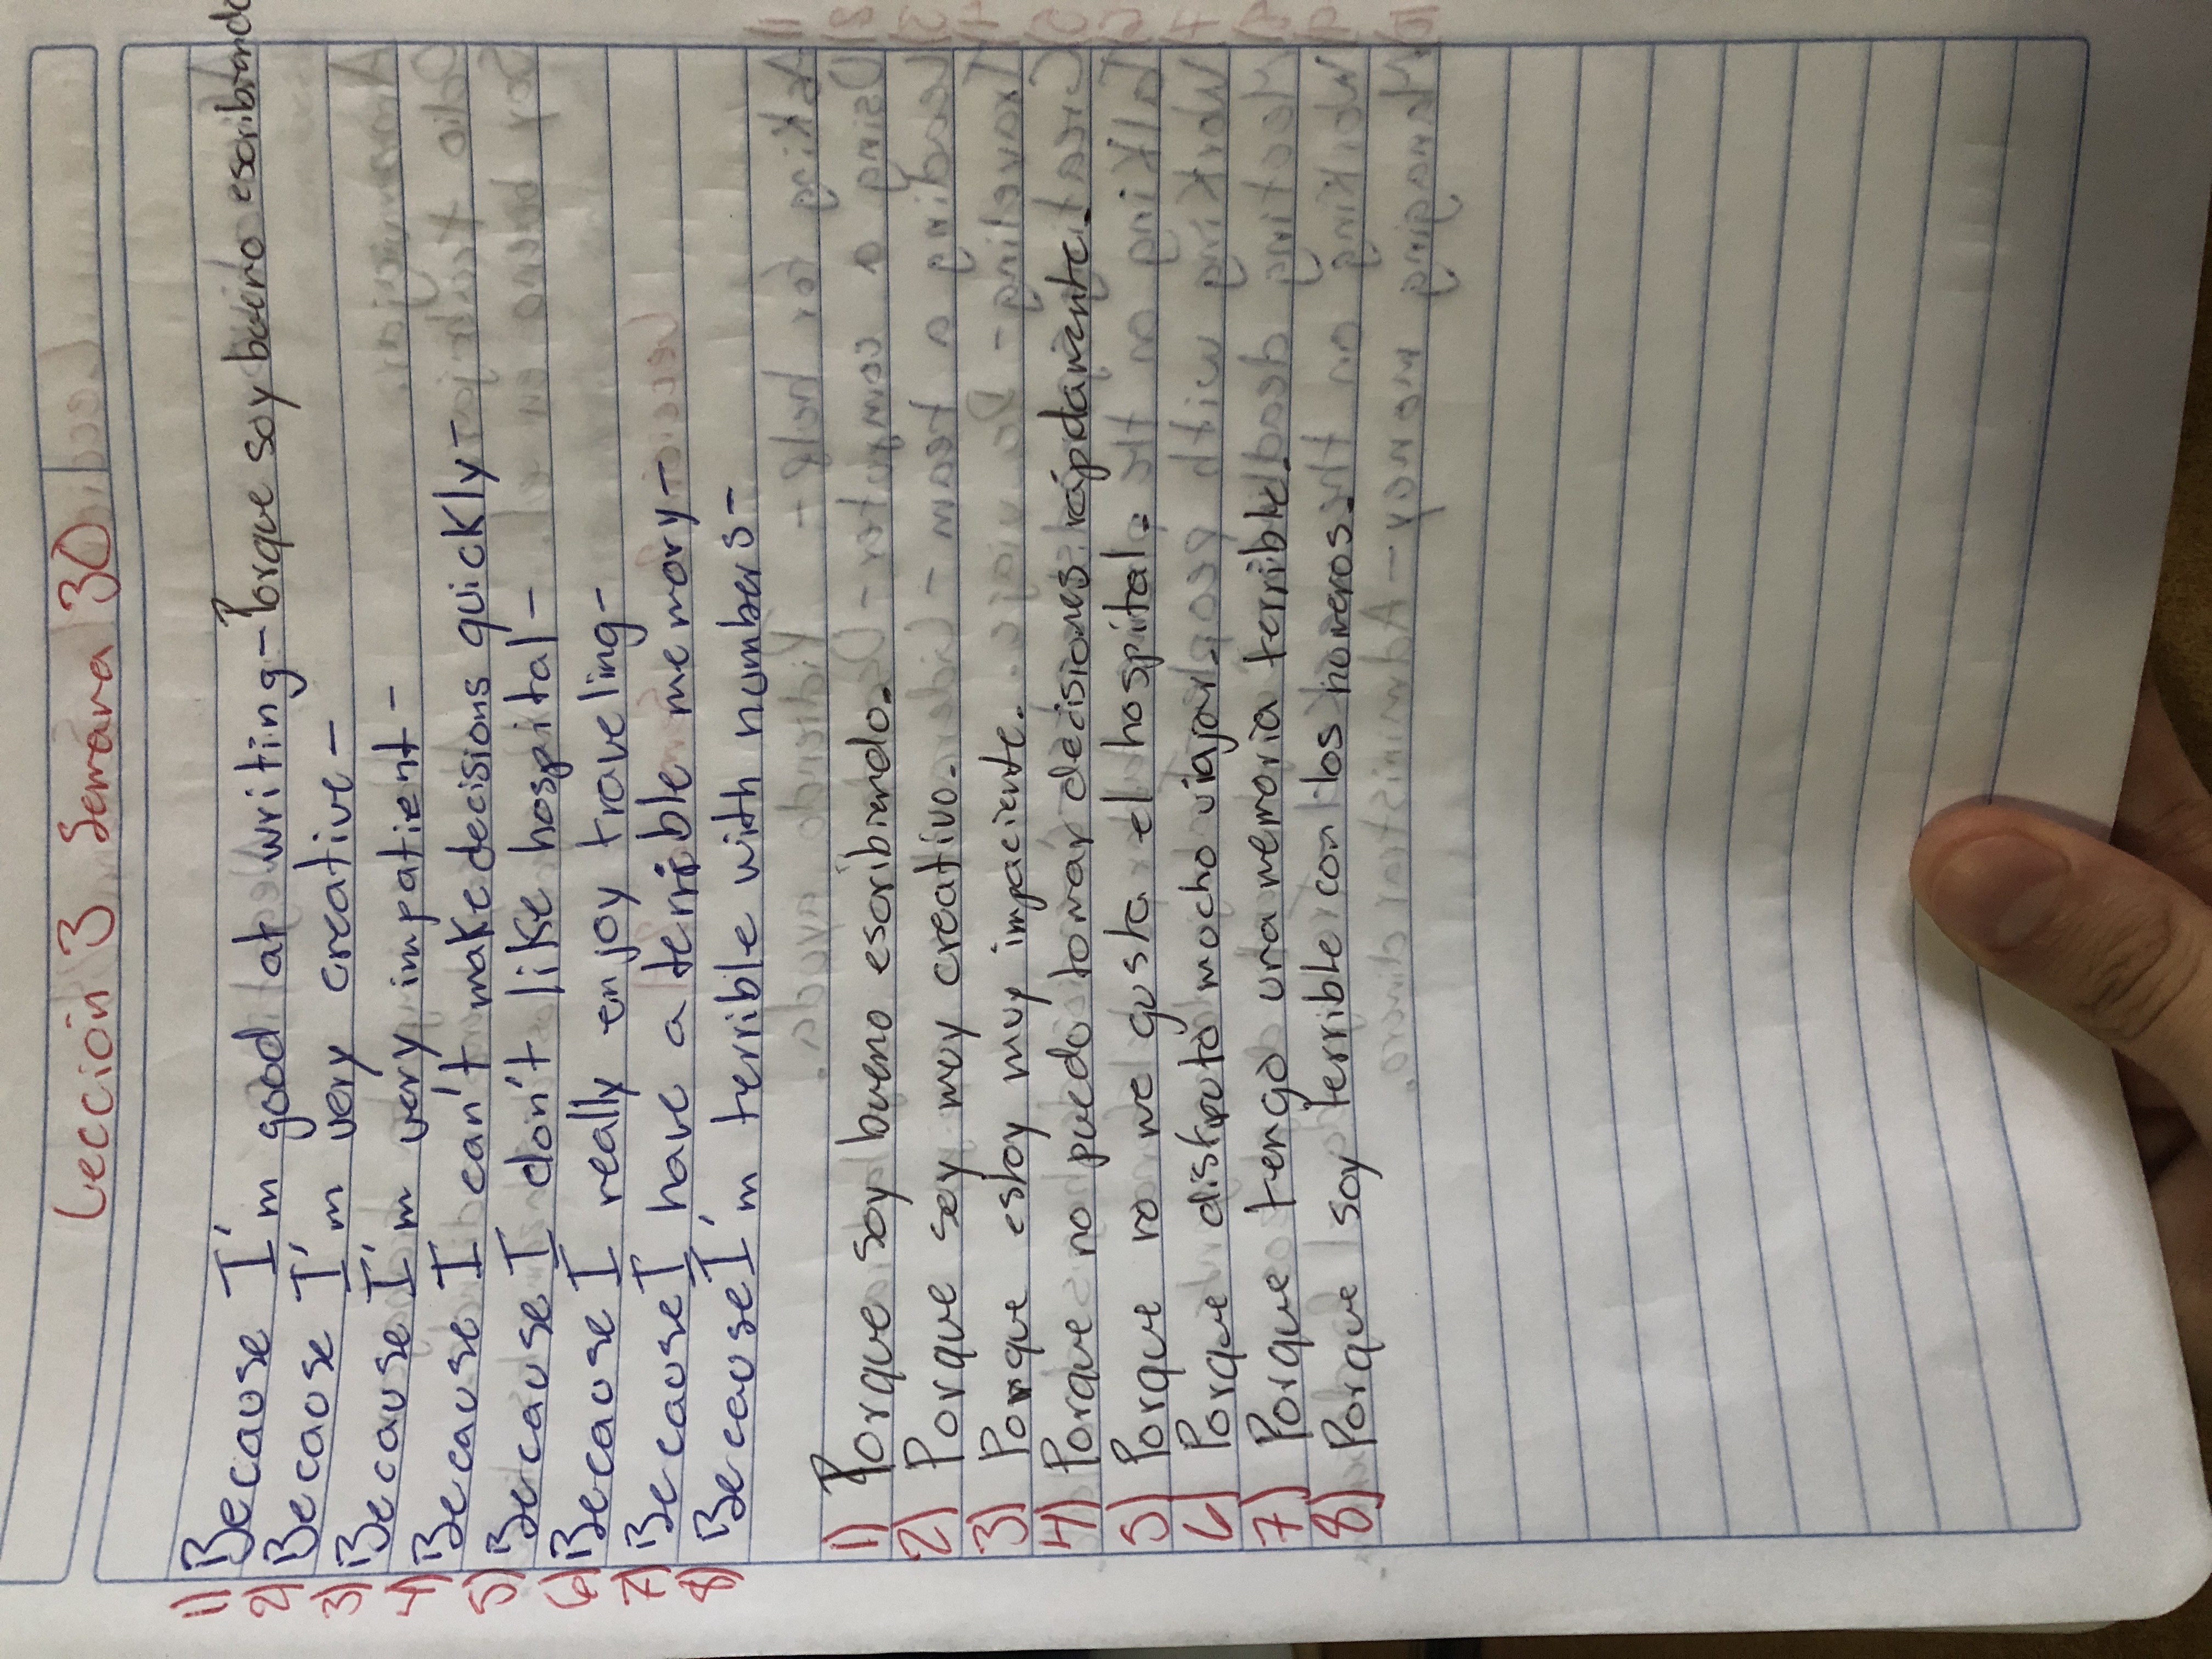 Lección 3 Semana 30
1) Because I'm good at writing - Porque soy bueno escribiendo
2) Because I'm very creative -
3) Because I'm very impatient -
4) Because I can't make decisions quickly -
5) Because I don't like hospital -
6) Because I really enjoy traveling -
7) Because I have a terrible memory -
8) Because I'm terrible with numbers -
1) Porque soy bueno escribiendo.
2) Porque soy muy creativo.
3) Porque estoy muy impaciente.
4) Porque no puedo tomar decisiones rápidamente.
5) Porque no me gusta el hospital.
6) Porque disfruto mucho viajar.
7) Porque tengo una memoria terrible.
8) Porque soy terrible con los números.